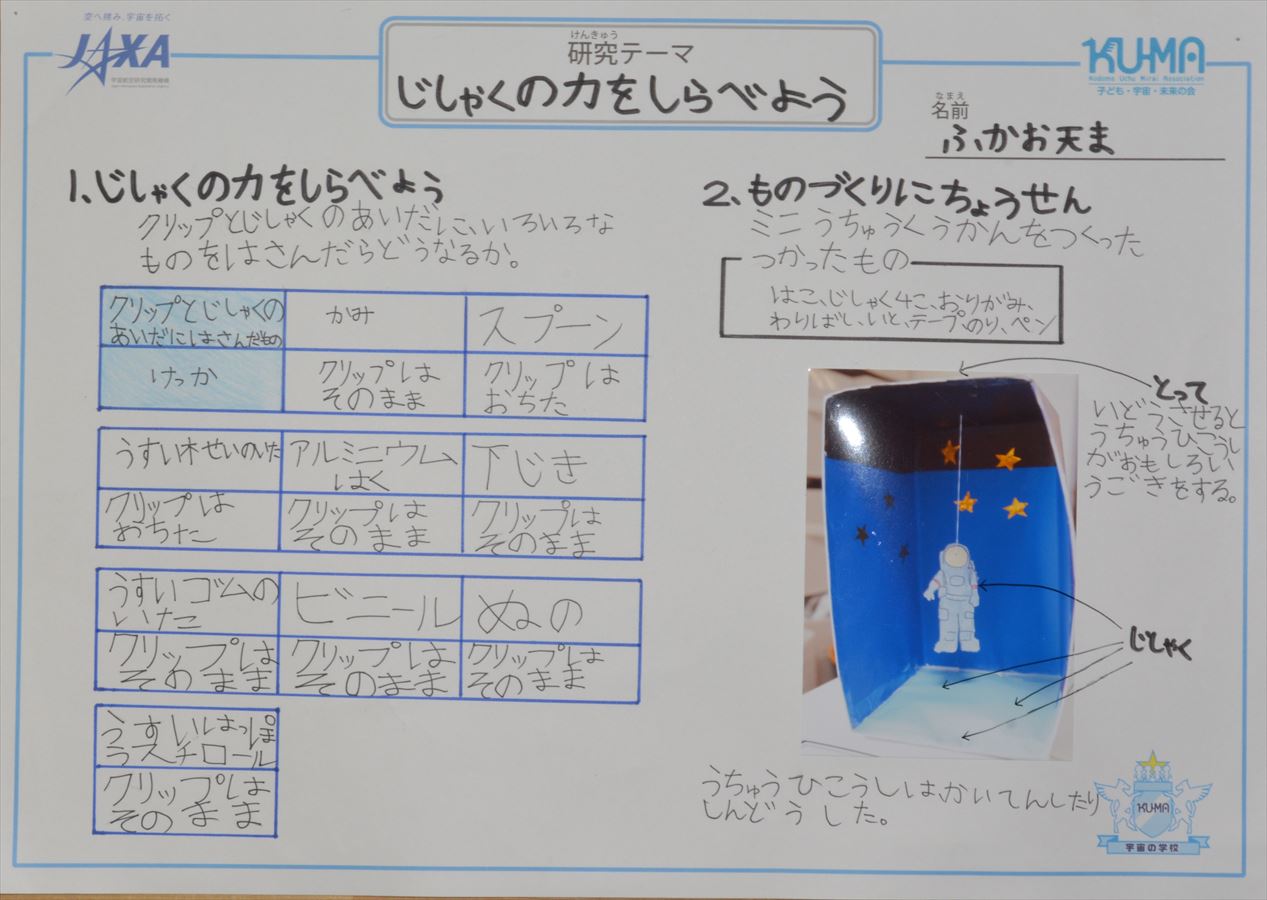 空へ挑み、宇宙を拓く
JAXA
宇宙航空研究開発機構
けんきゅう
研究テーマ
じしゃくの力をしらべよう
KU-MA
Kodomo Uchu Mirai Association
子ども・宇宙・未来の会
なまえ
名前
ふかお天ま
1、じしゃくの力をしらべよう
クリップとじしゃくのあいだに、いろいろな
ものをはさんだらどうなるか。
クリップとじしゃくの
あいだにはさんだもの
かみ
スプーン
けっか
クリップは
そのまま
クリップは
おちた
うすい木せいのいた
アルミニウム
はく
下じき
クリップは
おちた
クリップは
そのまま
クリップは
そのまま
うすいゴムの
いた
ビニール
ぬの
クリップは
そのまま
クリップは
そのまま
クリップは
そのまま
うすいはっぽ
うスチロール
クリップは
そのまま
2、ものづくりにちょうせん
ミニうちゅうくうかんをつくった
つかったもの
はこ、じしゃく4こ、おりがみ、
わりばし、いと、テープ、のり、ペン
とって
いどうさせると
うちゅうひこうし
がおもしろい
うごきをする。
じしゃく
うちゅうひこうしは、かいてんしたり
しんどうした。
KU-MA
宇宙の学校